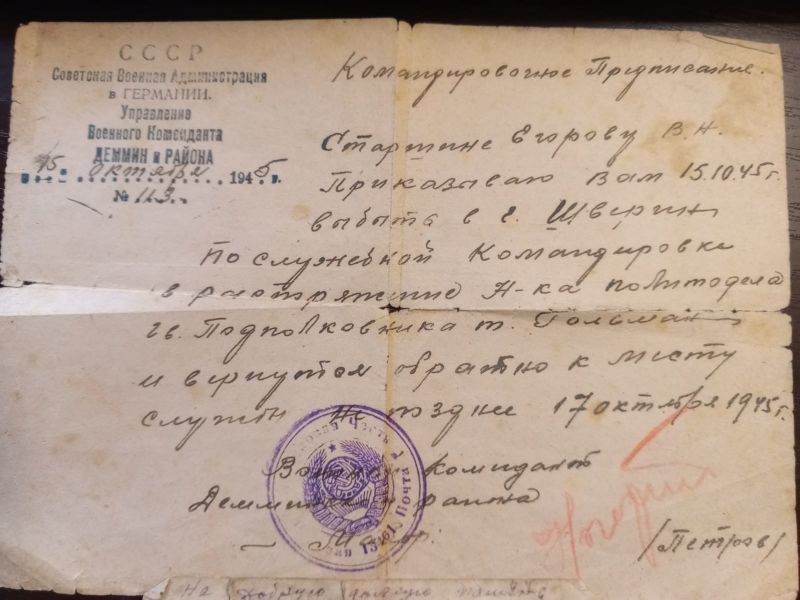 СССР
Советская Военная Администрация
в ГЕРМАНИИ.
Управление
Военного Коменданта
ДЕММИН и РАЙОНА
15 октября 1945 г.
№ 113.
Командировочное Предписание.
Старшине Егорову В.Н.
Приказываю Вам 15.10.45 г.
выбыть в г. Шверин
по служебной Командировки
в распоряжение Н-ка политодела
гв. Подполковника т. Гольман
и вернутся обратно к месту
службы не поздне 17 октября 1945 г.
Военный комендант
Деммин и района
(Петров)
На добрую память